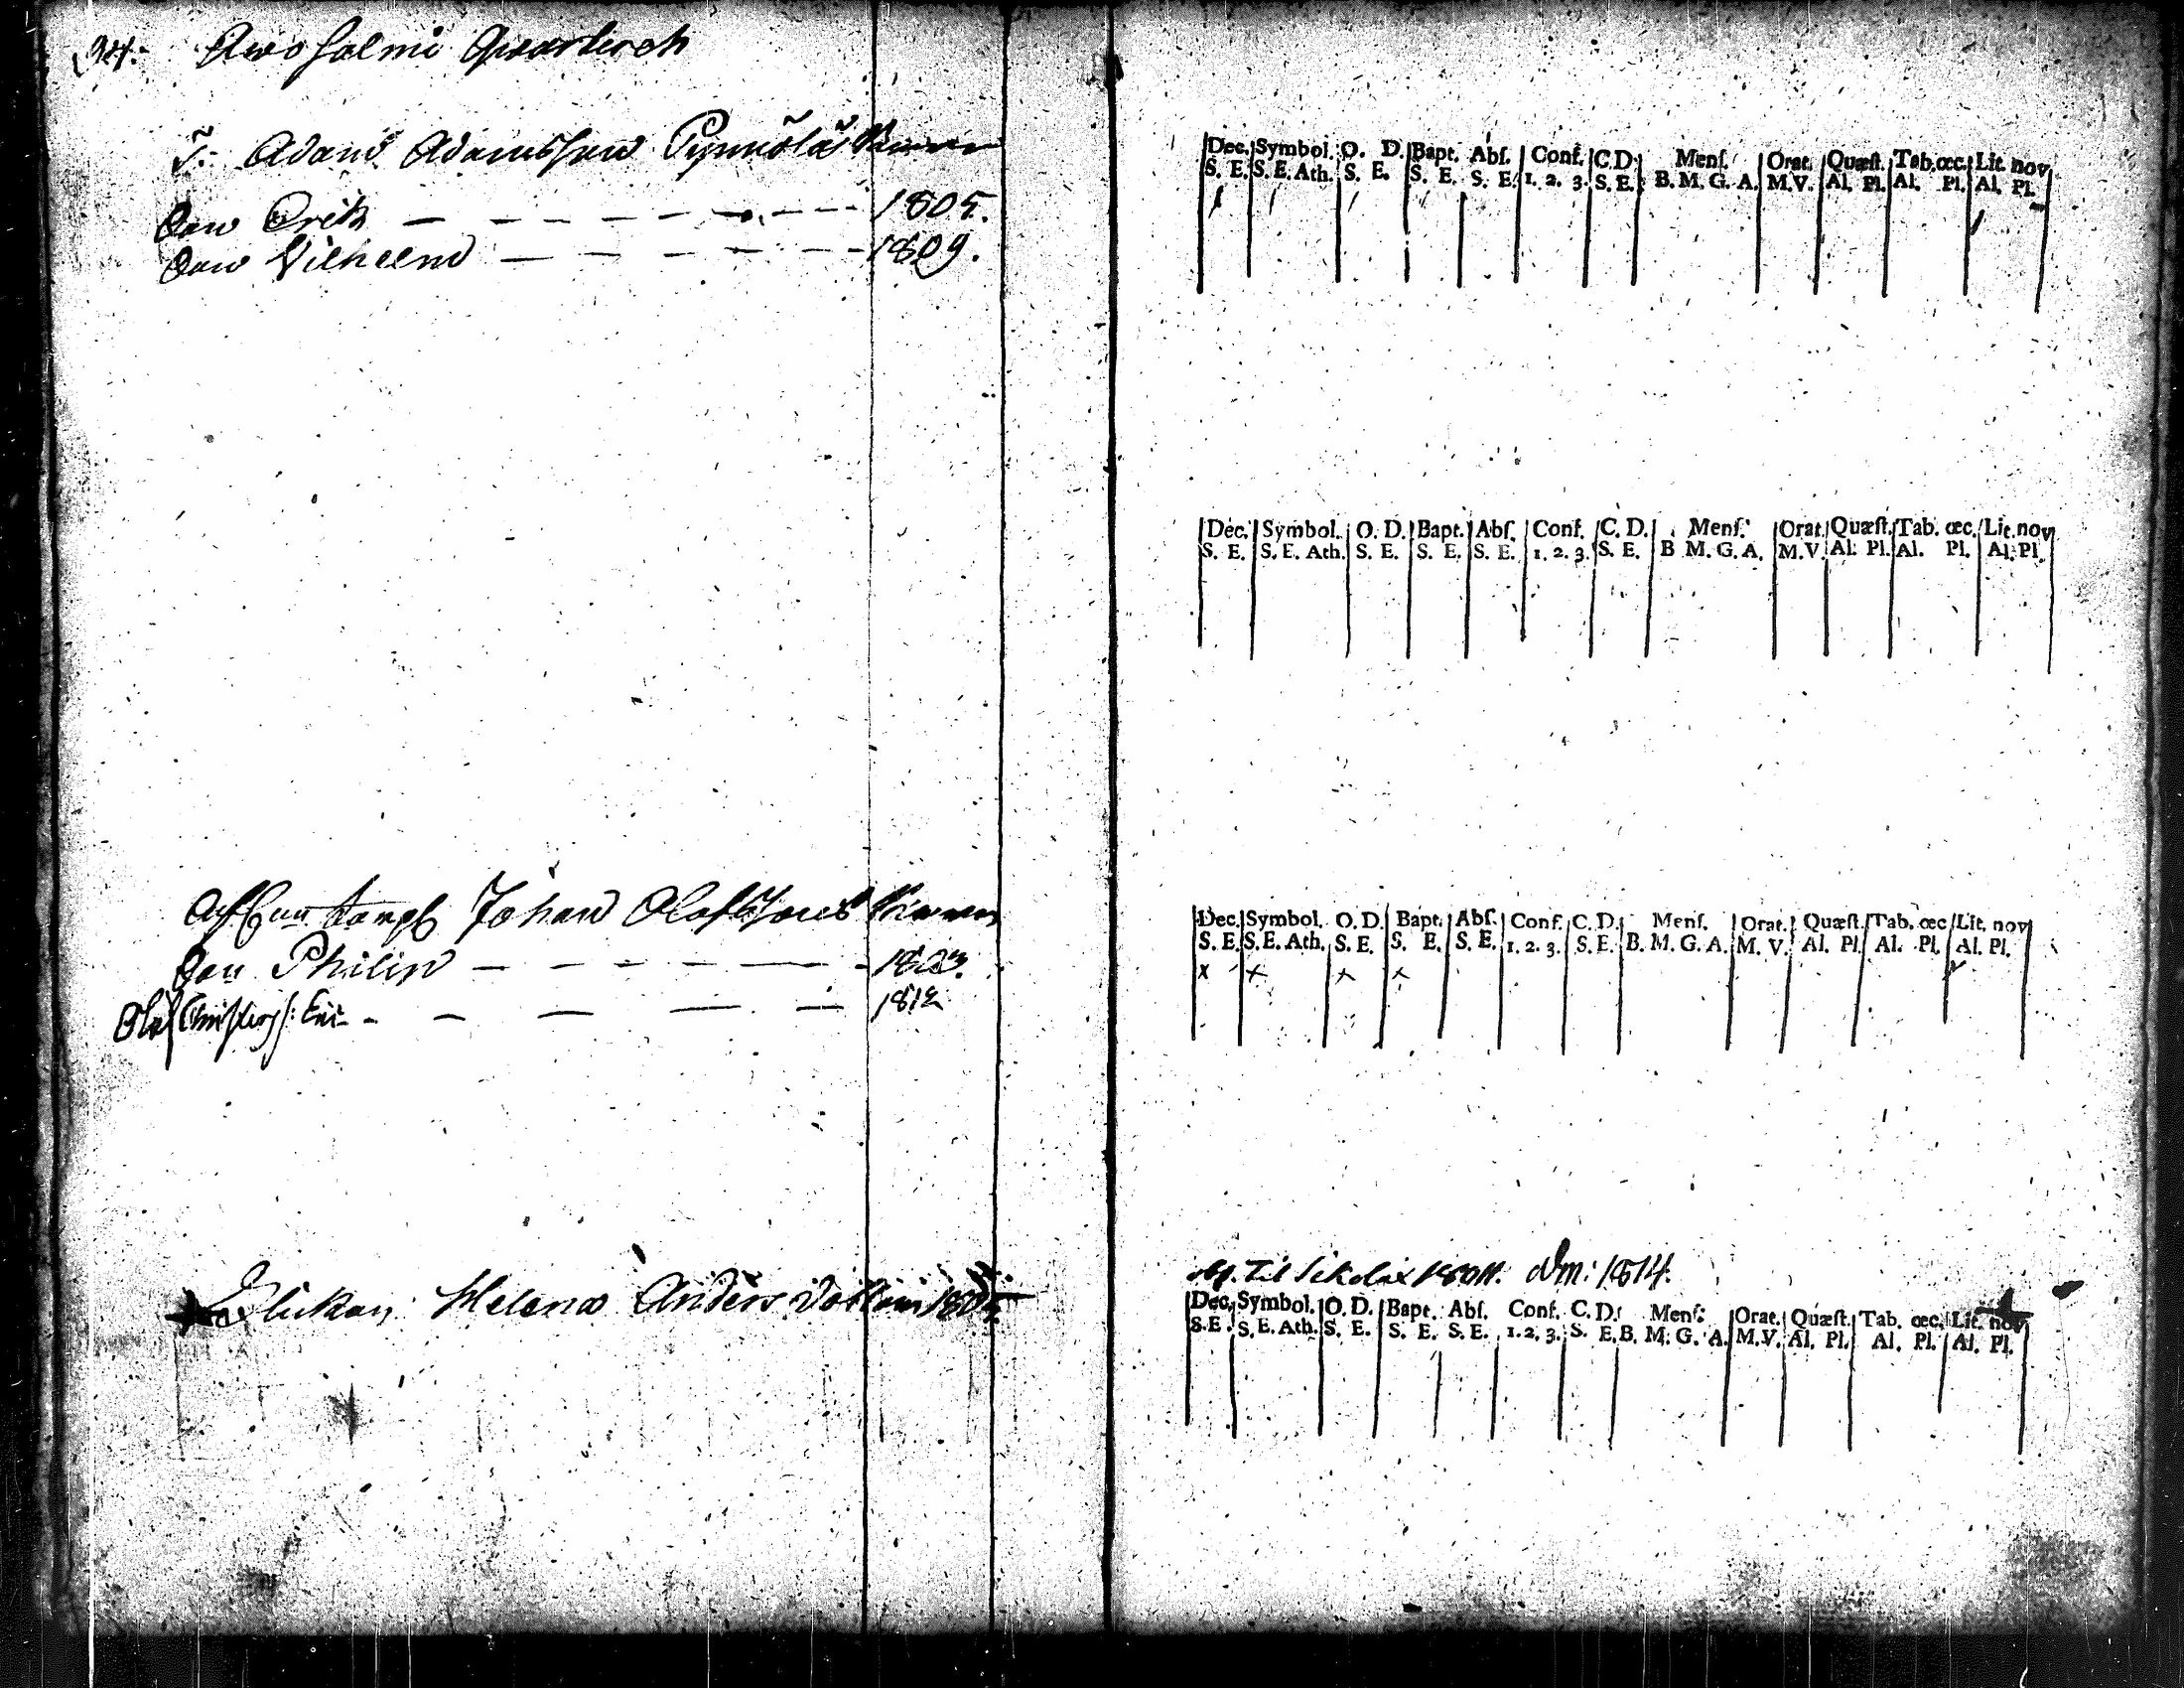 94. Awosalmi Quarterch
Adam Adamsson Pynnöläs
Son Erik — — — — — — — 1805.
Son Vilhelm — — — — — 1809.
Johan Olofssons
Son Philip — — — — —
Olof — — — — — 1812
Flickan Helena Anders Dotter
Dec. Symbol. O. D. Bapt. Abſ. Conf. C.D. Menſ. Orat. Quæſt. Tab. œc. Lit. nov
S. E. S. E. Ath. S. E. S. E. S. E. 1. 2. 3. S. E. B. M. G. A. M.V. Al. Pl. Al. Pl. Al. Pl.
Dec. Symbol. O. D. Bapt. Abſ. Conf. C. D. Menſ. Orat. Quæſt. Tab. œc. Lit. nov
S. E. S. E. Ath. S. E. S. E. S. E. 1. 2. 3. S. E. B M. G. A. M. V. Al. Pl. Al. Pl. Al. Pl.
Dec. Symbol. O. D. Bapt. Abſ. Conf. C. D. Menſ. Orat. Quæſt. Tab. œc. Lit. nov
S. E. S. E. Ath. S. E. S. E. S. E. 1. 2. 3. S. E. B. M. G. A. M. V. Al. Pl. Al. Pl. Al. Pl.
x x x x
Til 1814.
Dec. Symbol. O. D. Bapt. Abſ. Conf. C. D. Menſ: Orat. Quæſt. Tab. œc. Lit. nov
S. E. S. E. Ath. S. E. S. E. S. E. 1. 2. 3. S. E. B. M. G. A. M. V. Al. Pl. Al. Pl. Al. Pl.